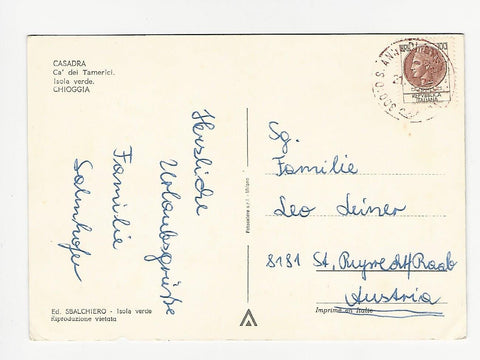 CASADRA
Ca' dei Tamerici.
Isola verde.
CHIOGGIA
Herzliche
Urlaubsgrüße
Familie
Salmhofer
Ed. SBALCHIERO - Isola verde
Riproduzione vietata
100
REPUBBLICA
ITALIANA
Sg.
Familie
Leo Leiner
8181 St. Ruprecht/Raab
Austria
Imprimé en Italie